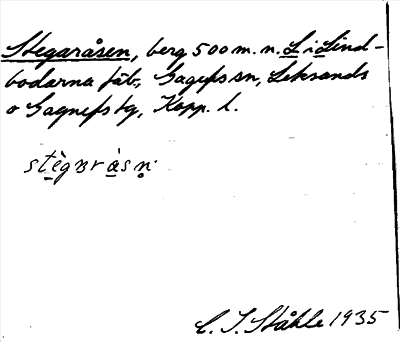 Stegaråsen, berg 500 m. n. L i Lind-
bodarna fäb., Gagnefs sn, Leksands
o Gagnefs tg, Kopp. l.
stègɐràsn̥
C. I. Ståhle 1935